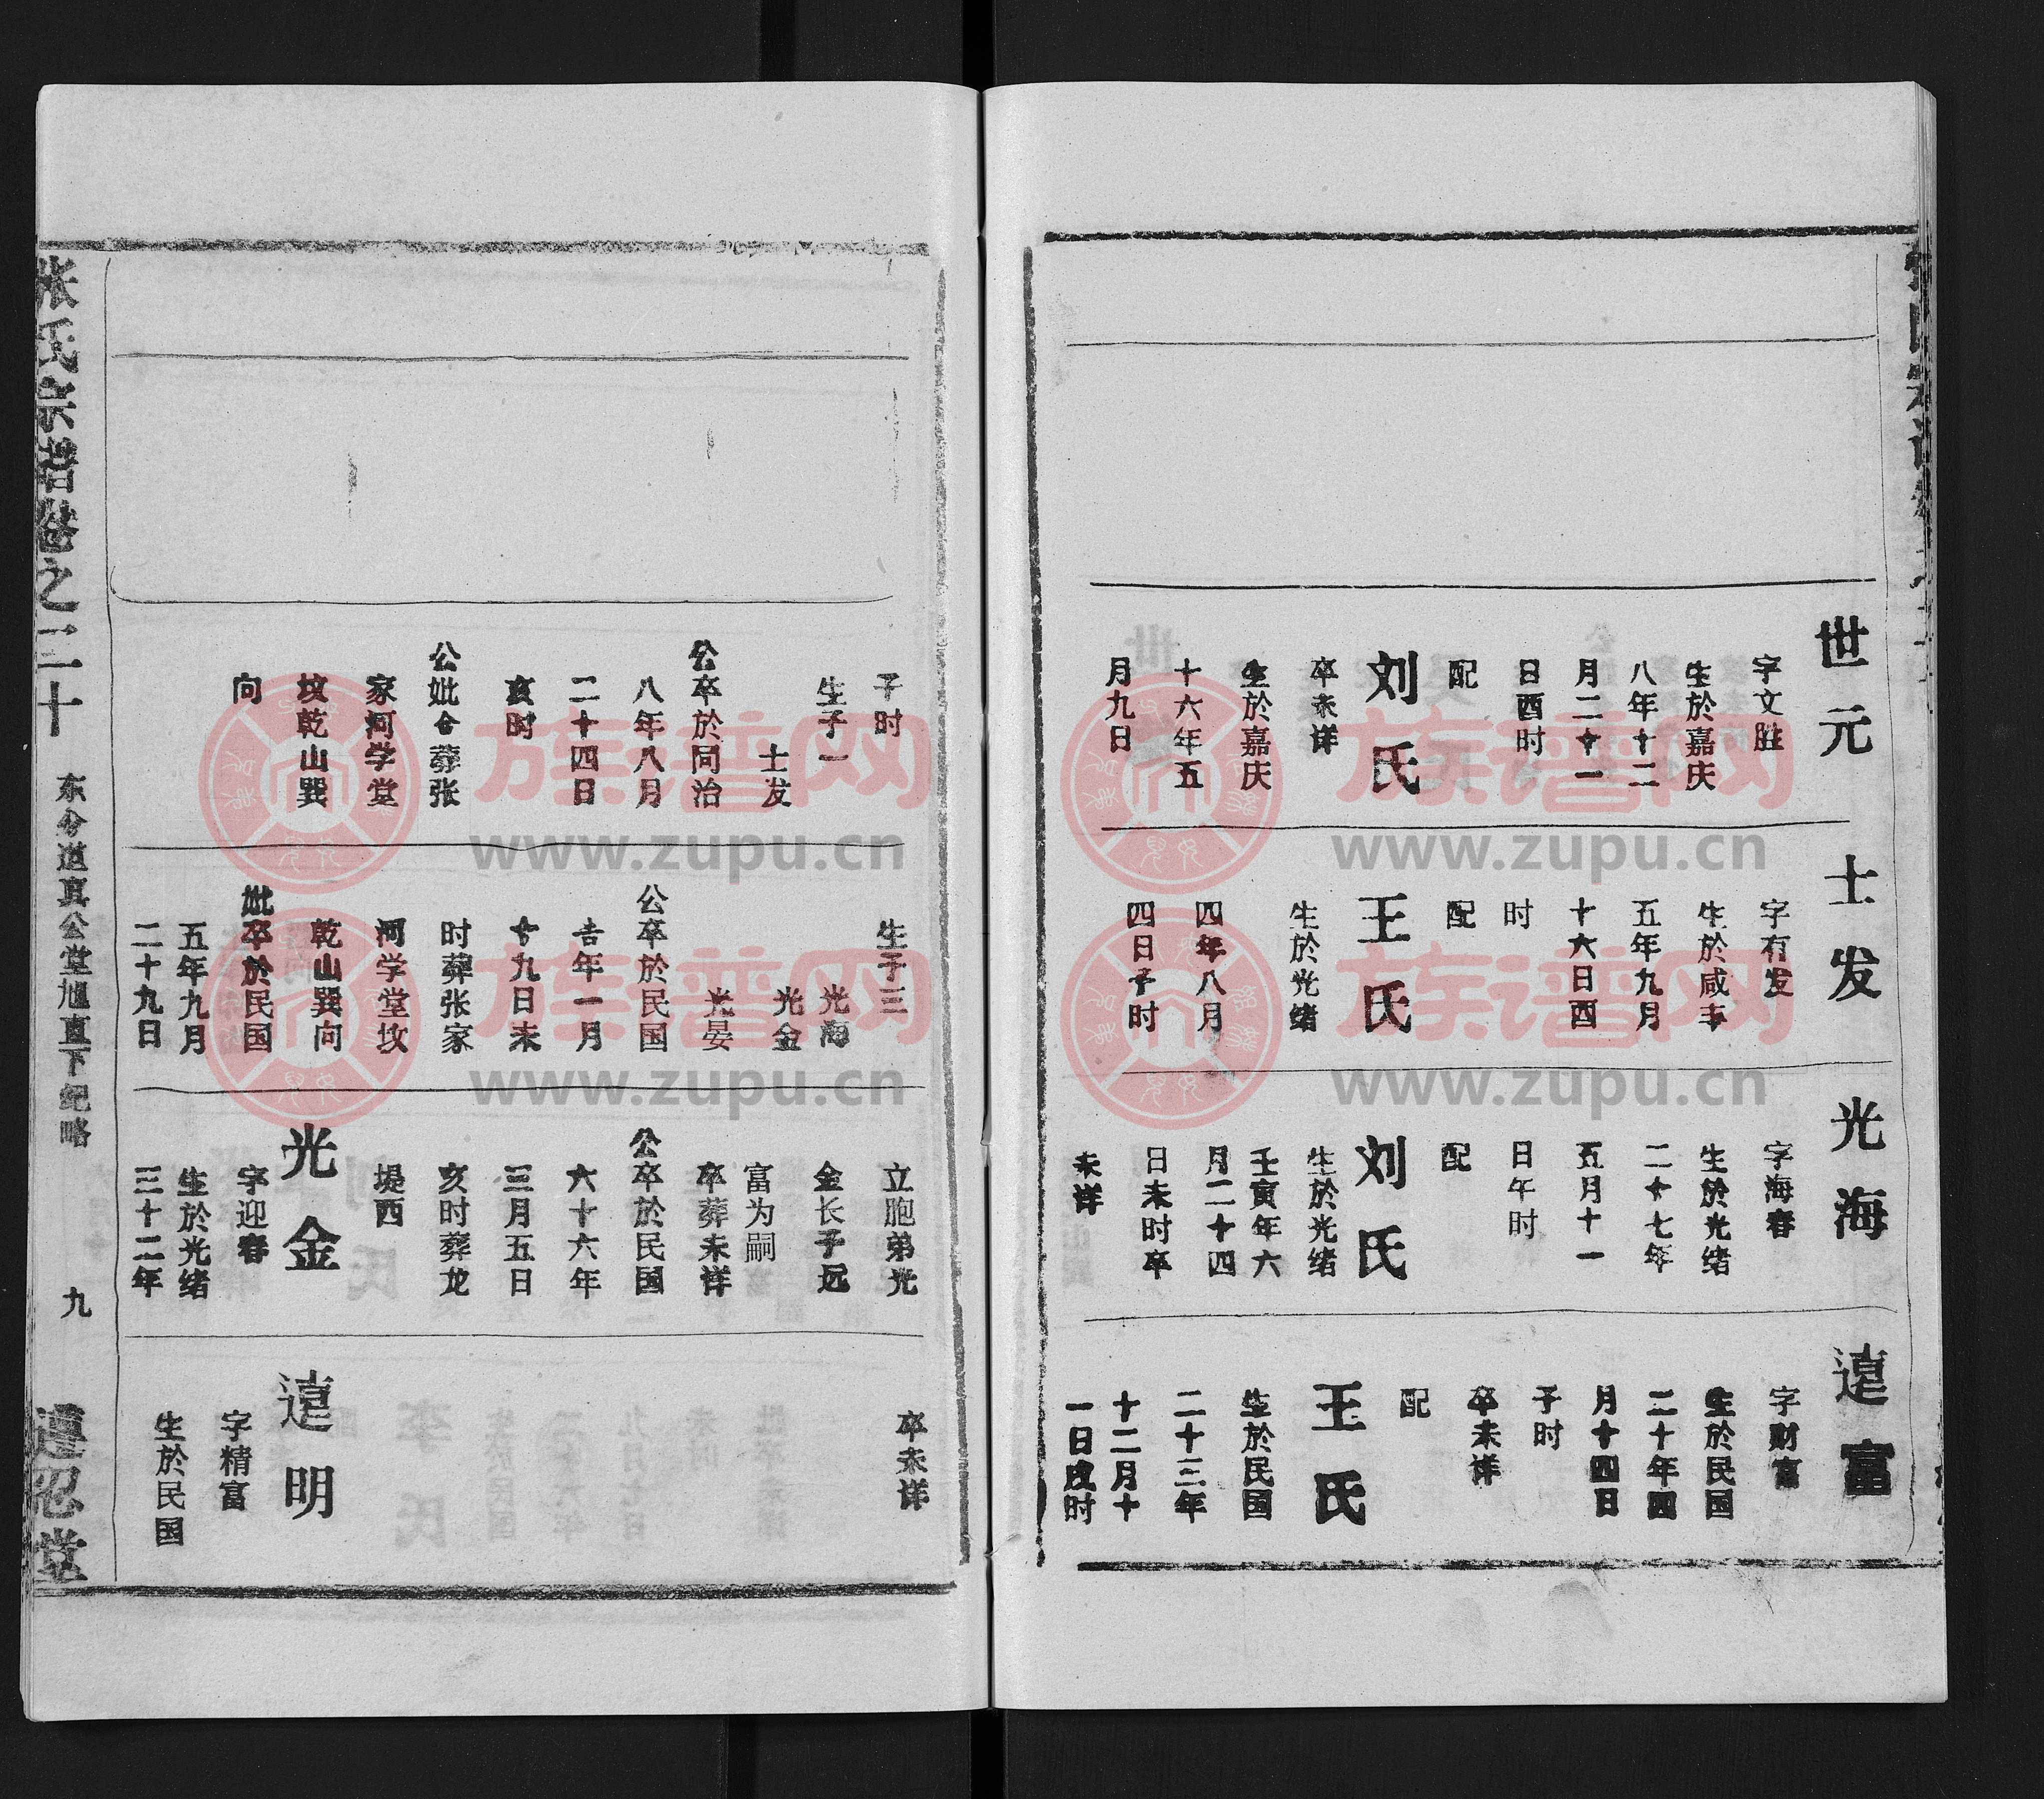 世元
字文胜
生於嘉庆
八年十二
月二十一
日酉时
配
刘氏
卒未详
生於嘉庆
十六年五
月九日
士发
字有发
生於咸丰
五年九月
十六日酉
时
配
王氏
生於光绪
四年八月
四日子时
光海
字海春
生於光绪
二十七年
五月十一
日午时
配
刘氏
生於光绪
壬寅年六
月二十四
日未时卒
未详
远富
字财富
生於民国
二十年四
月十四日
子时
卒未详
配
王氏
生於民国
二十三年
十二月十
一日戌时
子时
生子一
士发
公卒於同治
八年八月
二十四日
亥时
公妣合葬张
家河学堂
坟乾山巽
向
生子三
光海
光金
光晏
公卒於民国
吉年一月
十九日未
时葬张家
河学堂坟
乾山巽向
妣卒於民国
五年九月
二十九日
立胞弟光
金长子远
富为嗣
卒葬未详
公卒於民国
六十六年
三月五日
亥时葬龙
堤西
光金
字迎春
生於光绪
三十二年
卒未详
远明
字精富
生於民国
张氏宗谱卷之二十
东分道真公堂旭直下纪略
九
忍堂
族谱网
www.zupu.cn
族谱网
www.zupu.cn
族谱网
www.zupu.cn
族谱网
www.zupu.cn